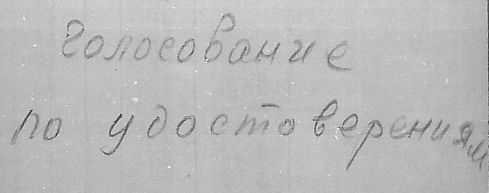 Голосование
по удостоверениям